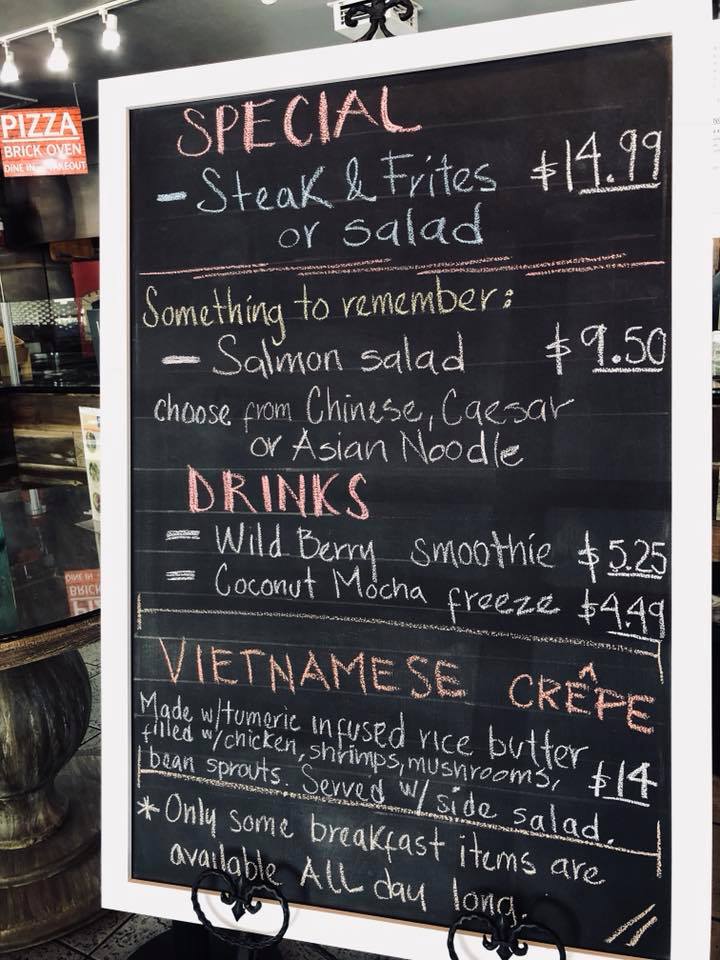 PIZZA
BRICK OVEN
DINE IN
SPECIAL
- Steak & Frites $14.99
or salad
Something to remember:
- Salmon salad $9.50
choose from Chinese, Caesar
or Asian Noodle
DRINKS
= Wild Berry smoothie $5.25
= Coconut Mocha freeze $4.49
VIETNAMESE CRÊPE
Made w/tumeric infused rice butter
filled w/chicken, shrimps, mushrooms,
bean sprouts. Served w/ side salad. $14
*Only some breakfast items are
available ALL day long.